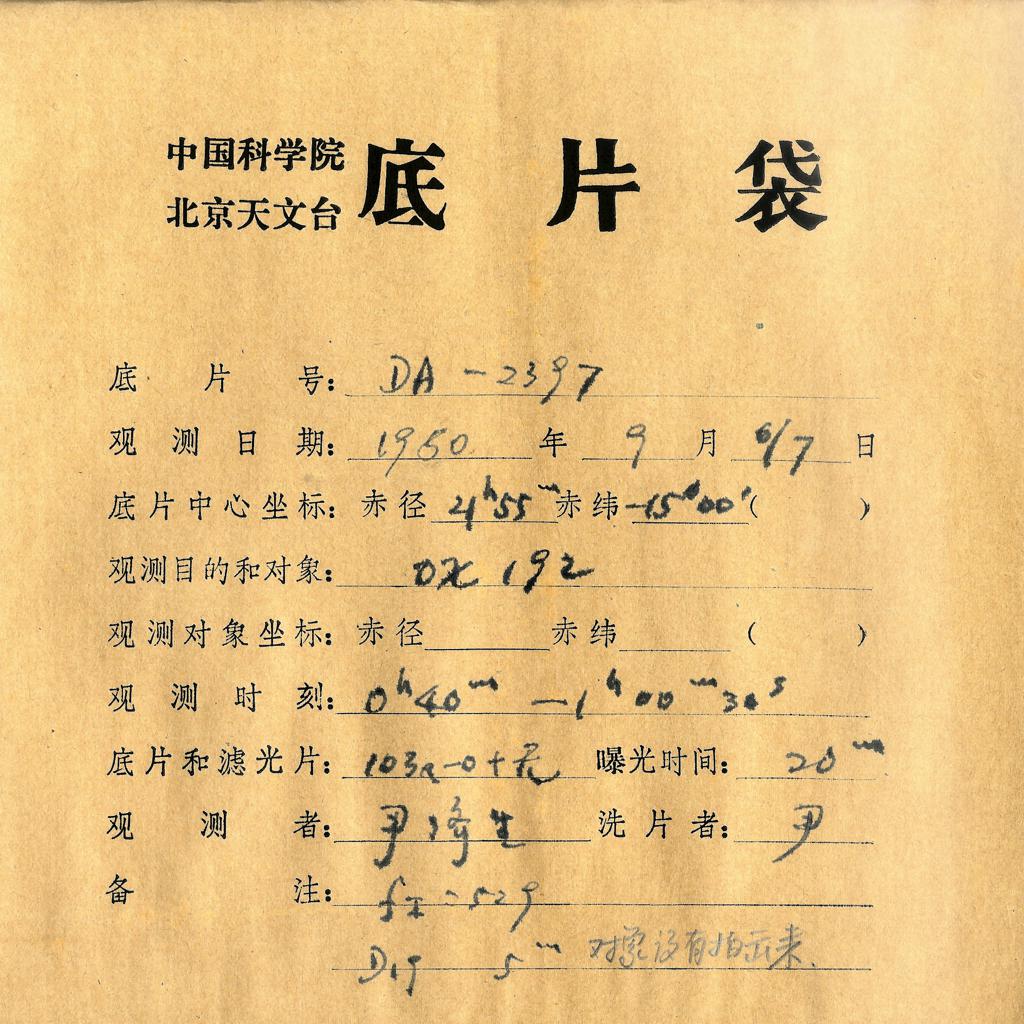 中国科学院
北京天文台 底片袋
底片号: DA-2397
观测日期: 1980 年 9 月 6/7 日
底片中心坐标: 赤径 21ʰ55ᵐ 赤纬 -15°00′ ( )
观测目的和对象: OX 192
观测对象坐标: 赤径 赤纬 ( )
观测时刻: 0ʰ40ᵐ — 1ʰ00ᵐ30ˢ
底片和滤光片: 103a-0+无 曝光时间: 20ᵐ
观测者: 尹济生 洗片者: 尹
备注: f工=529
5ᵐ 对象没有拍出来.